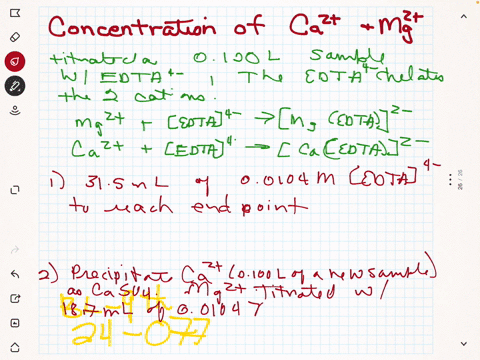 Concentration of Ca2+ + Mg2+
titrated a 0.100 L sample
w/ EDTA4- ; The EDTA4- chelates
the 2 cations.
Mg2+ + [EDTA]4- → [Mg(EDTA)]2-
Ca2+ + [EDTA]4- → [Ca(EDTA)]2-
1) 31.5 mL of 0.0104 M [EDTA]4-
to reach end point
2) Precipitate Ca2+ (0.100 L of a new sample)
as CaSO4. Mg2+ titrated w/
18.7 mL of 0.0104
24-077
26 / 26